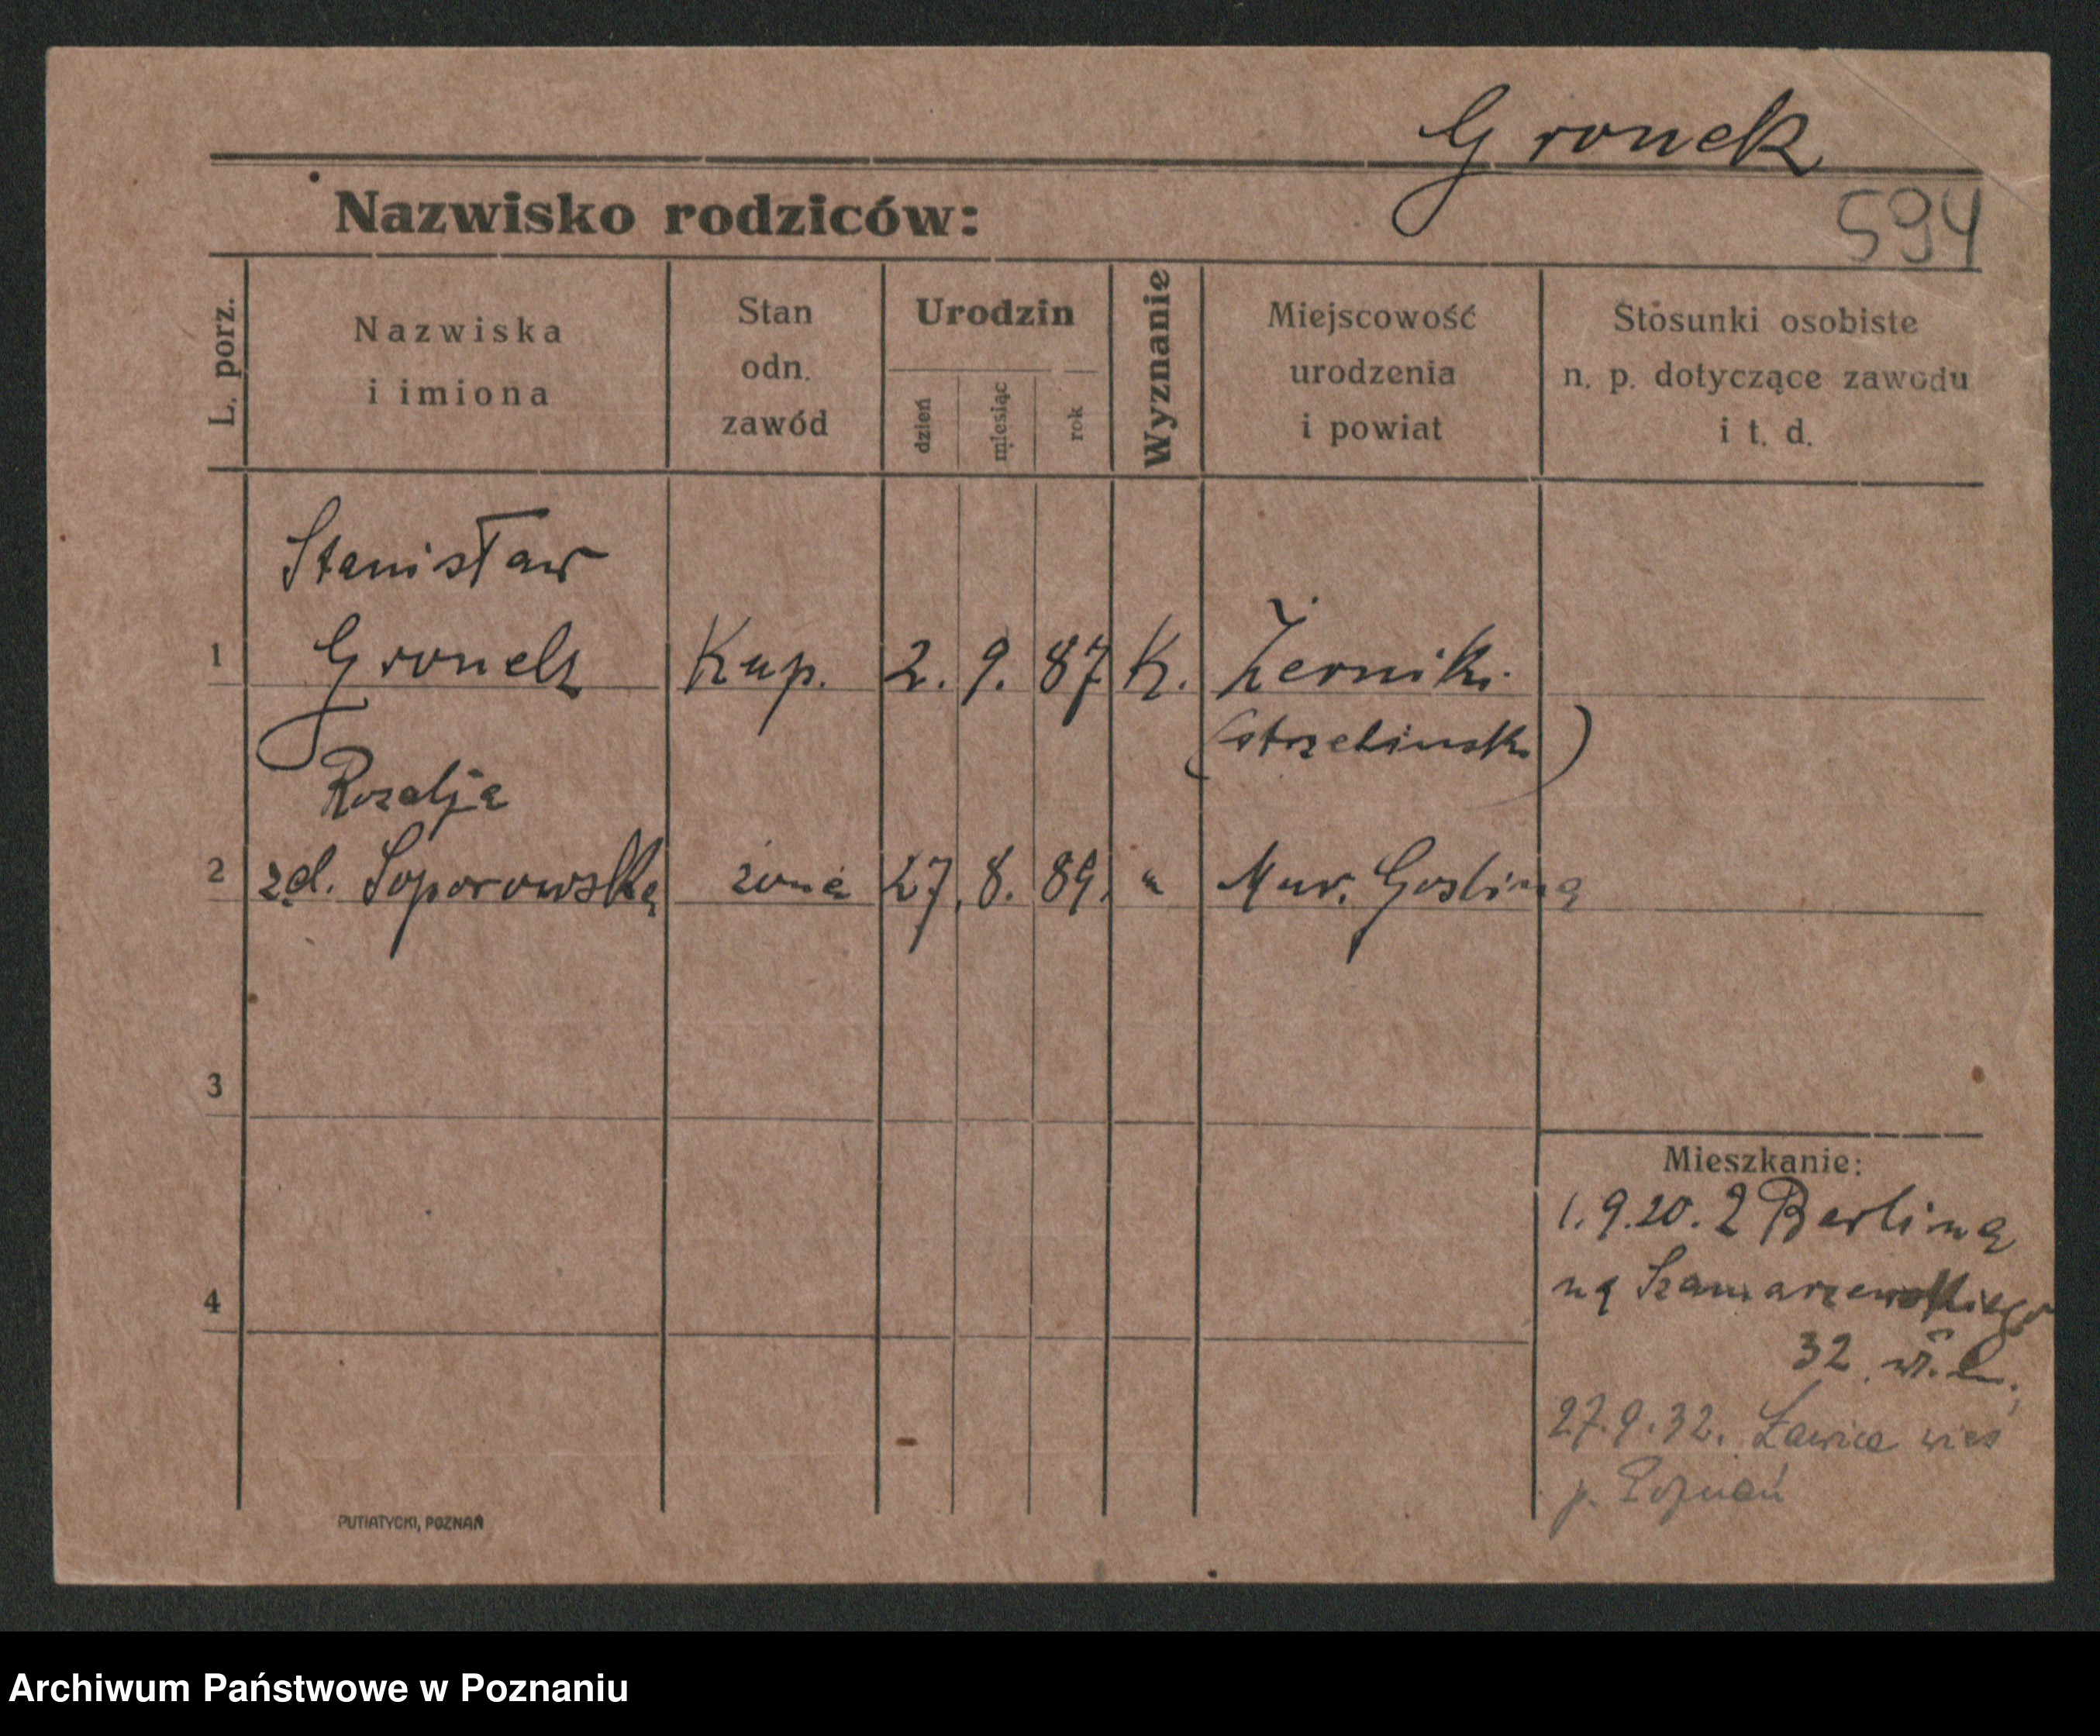 Gronek
594
Nazwisko rodziców:
L. porz.
Nazwiska
i imiona
Stan
odn.
zawód
Urodzin
dzień
miesiąc
rok
Wyznanie
Miejscowość
urodzenia
i powiat
Stosunki osobiste
n. p. dotyczące zawodu
i t. d.
Stanisław
1 Gronek Kup. 2. 9. 87 K. Żerniki
(strzelinsk)
Rozalja
2 zd. Soporowska żona 27. 8. 89. " Mur. Goslina
3
4
Mieszkanie:
1. 9. 20. z Berlina
na Szamarzewskiego
32
27. 9. 32. Ławica wieś
p. Poznań
PUTIATYCKI, POZNAŃ
Archiwum Państwowe w Poznaniu